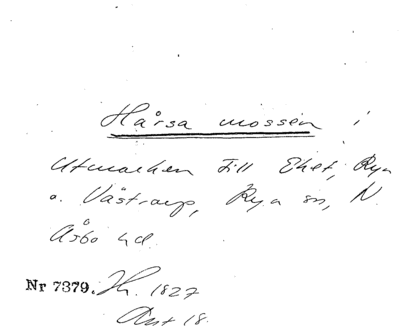 Hårsa mossen i
Utmarken till Eket, Rya
o. Västrarp, Rya sn, N.
Åsbo hd.
Nr 7379. Jh. 1827
Akt 18.